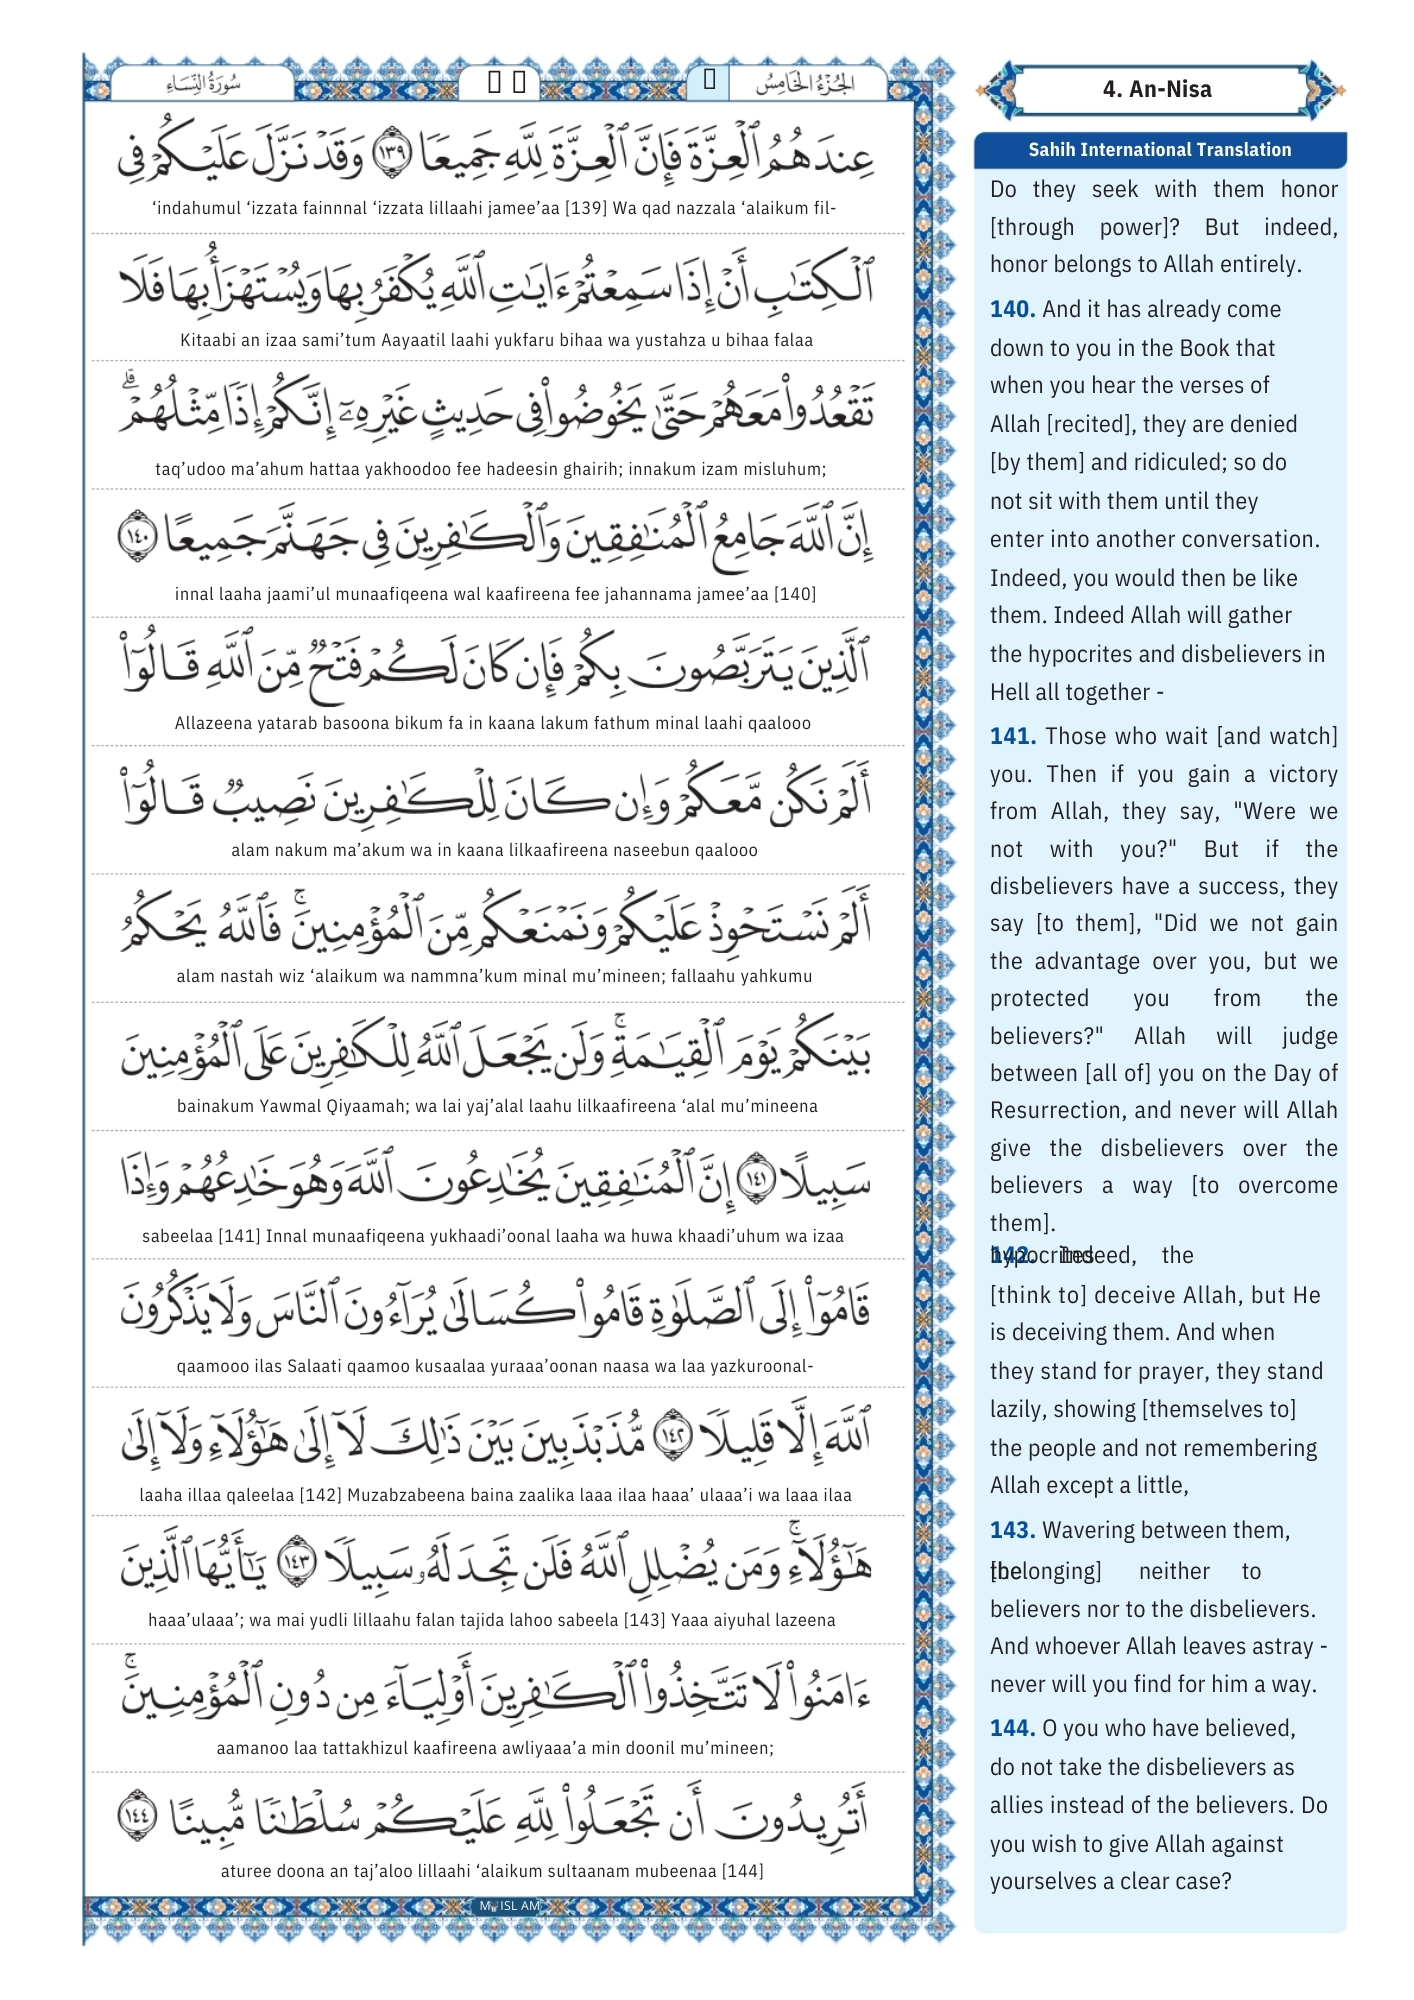 سُورَةُ النِّسَاءِ
الجُزْءُ الخَامِسُ
عِندَهُمُ ٱلْعِزَّةَ فَإِنَّ ٱلْعِزَّةَ لِلَّهِ جَمِيعًا ١٣٩ وَقَدْ نَزَّلَ عَلَيْكُمْ فِى
‘indahumul ‘izzata fainnnal ‘izzata lillaahi jamee’aa [139] Wa qad nazzala ‘alaikum fil-
ٱلْكِتَٰبِ أَنْ إِذَا سَمِعْتُمْ ءَايَٰتِ ٱللَّهِ يُكْفَرُ بِهَا وَيُسْتَهْزَأُ بِهَا فَلَا
Kitaabi an izaa sami’tum Aayaatil laahi yukfaru bihaa wa yustahza u bihaa falaa
تَقْعُدُوا۟ مَعَهُمْ حَتَّىٰ يَخُوضُوا۟ فِى حَدِيثٍ غَيْرِهِۦٓ إِنَّكُمْ إِذًا مِّثْلُهُمْ ۗ
taq’udoo ma’ahum hattaa yakhoodoo fee hadeesin ghairih; innakum izam misluhum;
إِنَّ ٱللَّهَ جَامِعُ ٱلْمُنَٰفِقِينَ وَٱلْكَٰفِرِينَ فِى جَهَنَّمَ جَمِيعًا ١٤٠
innal laaha jaami’ul munaafiqeena wal kaafireena fee jahannama jamee’aa [140]
ٱلَّذِينَ يَتَرَبَّصُونَ بِكُمْ فَإِن كَانَ لَكُمْ فَتْحٌ مِّنَ ٱللَّهِ قَالُوٓا۟
Allazeena yatarab basoona bikum fa in kaana lakum fathum minal laahi qaalooo
أَلَمْ نَكُن مَّعَكُمْ وَإِن كَانَ لِلْكَٰفِرِينَ نَصِيبٌ قَالُوٓا۟
alam nakum ma’akum wa in kaana lilkaafireena naseebun qaalooo
أَلَمْ نَسْتَحْوِذْ عَلَيْكُمْ وَنَمْنَعْكُم مِّنَ ٱلْمُؤْمِنِينَ ۚ فَٱللَّهُ يَحْكُمُ
alam nastah wiz ‘alaikum wa nammna’kum minal mu’mineen; fallaahu yahkumu
بَيْنَكُمْ يَوْمَ ٱلْقِيَٰمَةِ ۚ وَلَن يَجْعَلَ ٱللَّهُ لِلْكَٰفِرِينَ عَلَى ٱلْمُؤْمِنِينَ
bainakum Yawmal Qiyaamah; wa lai yaj’alal laahu lilkaafireena ‘alal mu’mineena
سَبِيلًا ١٤١ إِنَّ ٱلْمُنَٰفِقِينَ يُخَٰدِعُونَ ٱللَّهَ وَهُوَ خَٰدِعُهُمْ وَإِذَا
sabeelaa [141] Innal munaafiqeena yukhaadi’oonal laaha wa huwa khaadi’uhum wa izaa
قَامُوٓا۟ إِلَى ٱلصَّلَوٰةِ قَامُوا۟ كُسَالَىٰ يُرَآءُونَ ٱلنَّاسَ وَلَا يَذْكُرُونَ
qaamooo ilas Salaati qaamoo kusaalaa yuraaa’oonan naasa wa laa yazkuroonal-
ٱللَّهَ إِلَّا قَلِيلًا ١٤٢ مُّذَبْذَبِينَ بَيْنَ ذَٰلِكَ لَآ إِلَىٰ هَٰٓؤُلَآءِ وَلَآ إِلَىٰ
laaha illaa qaleelaa [142] Muzabzabeena baina zaalika laaa ilaa haaa’ ulaaa’i wa laaa ilaa
هَٰٓؤُلَآءِ ۚ وَمَن يُضْلِلِ ٱللَّهُ فَلَن تَجِدَ لَهُۥ سَبِيلًا ١٤٣ يَٰٓأَيُّهَا ٱلَّذِينَ
haaa’ulaaa’; wa mai yudli lillaahu falan tajida lahoo sabeela [143] Yaaa aiyuhal lazeena
ءَامَنُوا۟ لَا تَتَّخِذُوا۟ ٱلْكَٰفِرِينَ أَوْلِيَآءَ مِن دُونِ ٱلْمُؤْمِنِينَ ۚ
aamanoo laa tattakhizul kaafireena awliyaaa’a min doonil mu’mineen;
أَتُرِيدُونَ أَن تَجْعَلُوا۟ لِلَّهِ عَلَيْكُمْ سُلْطَٰنًا مُّبِينًا ١٤٤
aturee doona an taj’aloo lillaahi ‘alaikum sultaanam mubeenaa [144]
4. An-Nisa
Sahih International Translation
Do they seek with them honor
[through power]? But indeed,
honor belongs to Allah entirely.
140. And it has already come
down to you in the Book that
when you hear the verses of
Allah [recited], they are denied
[by them] and ridiculed; so do
not sit with them until they
enter into another conversation.
Indeed, you would then be like
them. Indeed Allah will gather
the hypocrites and disbelievers in
Hell all together -
141. Those who wait [and watch]
you. Then if you gain a victory
from Allah, they say, "Were we
not with you?" But if the
disbelievers have a success, they
say [to them], "Did we not gain
the advantage over you, but we
protected you from the
believers?" Allah will judge
between [all of] you on the Day of
Resurrection, and never will Allah
give the disbelievers over the
believers a way [to overcome
them].
142. Indeed, the
hypocrites
[think to] deceive Allah, but He
is deceiving them. And when
they stand for prayer, they stand
lazily, showing [themselves to]
the people and not remembering
Allah except a little,
143. Wavering between them,
[belonging] neither to
the
believers nor to the disbelievers.
And whoever Allah leaves astray -
never will you find for him a way.
144. O you who have believed,
do not take the disbelievers as
allies instead of the believers. Do
you wish to give Allah against
yourselves a clear case?